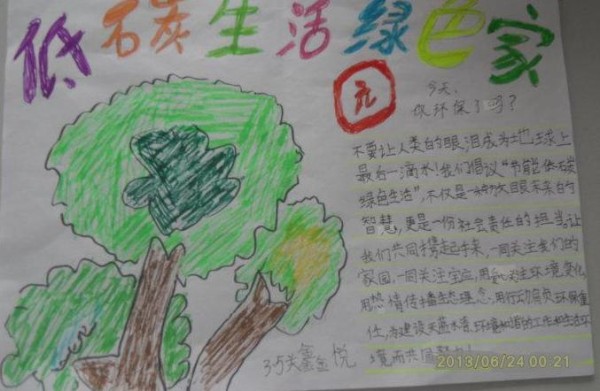 低碳生活绿色家
元
今天,
你环保了吗?
不要让人类的眼泪成为地球上
最后一滴水!我们倡议“节能低碳
绿色生活”,不仅是一种放眼未来的
智慧,更是一份社会责任的担当,让
我们共同携起手来,一同关注我们的
家园,一同关注宝应,用 关注环境变化,
用热情传播生态理念,用行动肩负环保重
任,为建设天蓝水清,环境和谐的工作和生活环
境而共同努力!
鑫悦
2013/06/24 00:21